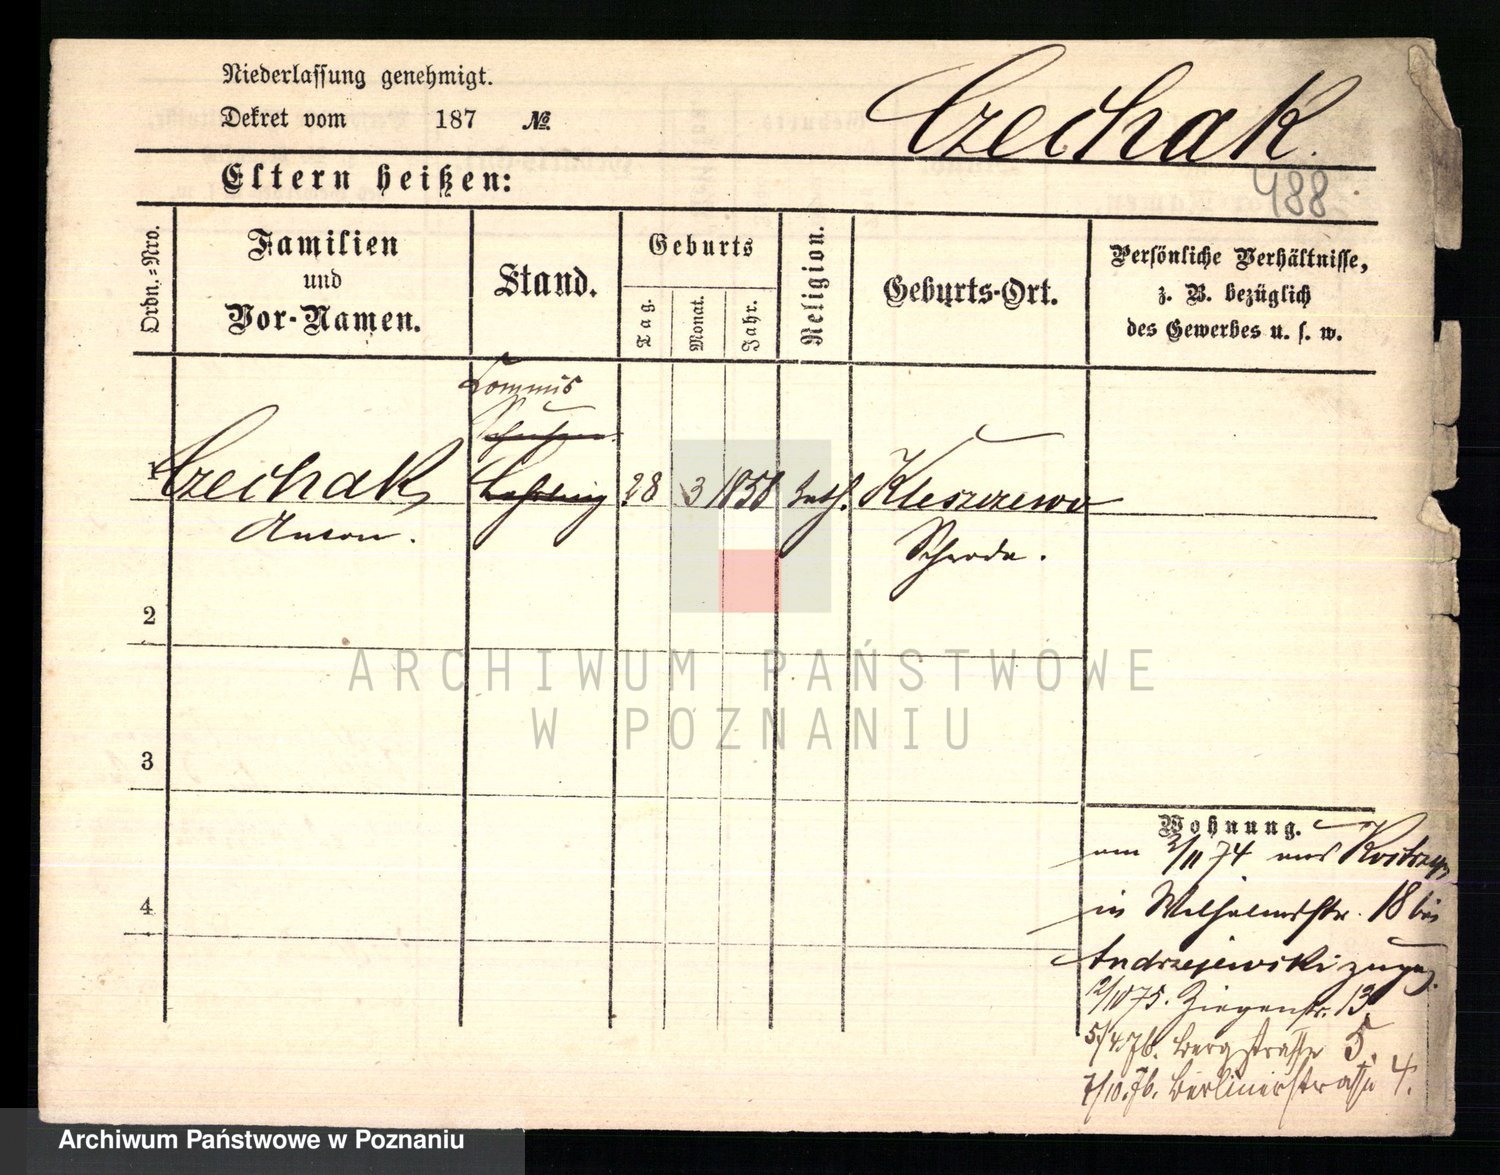 Niederlassung genehmigt.
Dekret vom 187 №
Czechak.
488
Eltern heißen:
Ordn.-Nro.
Familien
und
Vor-Namen.
Stand.
Geburts
Tag.
Monat.
Jahr.
Religion.
Geburts-Ort.
Persönliche Verhältnisse,
z. B. bezüglich
des Gewerbes u. s. w.
Commis
1 Czechak, Lehrling 28 3 1858 kath. Kleszczewo
Anton. Schroda.
2
3
4
ARCHIWUM PAŃSTWOWE
W POZNANIU
Wohnung.
am 2/11 74 aus Kostrzyn
in Wilhelmsstr. 18 bei
Andrzejewski zugez.
Ziegenstr. 13.
5/4.76. Bergstrasse 5.
7/10.76. Berlinerstrasse 4.
Archiwum Państwowe w Poznaniu